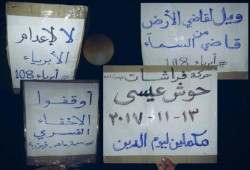 ويل لقاضي الأرض
من
قاضي السماء
#أبرياء 108
لا لإعدام
الأبرياء
#أبرياء 108
حركة فراشات
حوش عيسى
١٣-١١-٢٠١٧
مكملين ليوم الدين
أوقفوا
الاختفاء
القسري